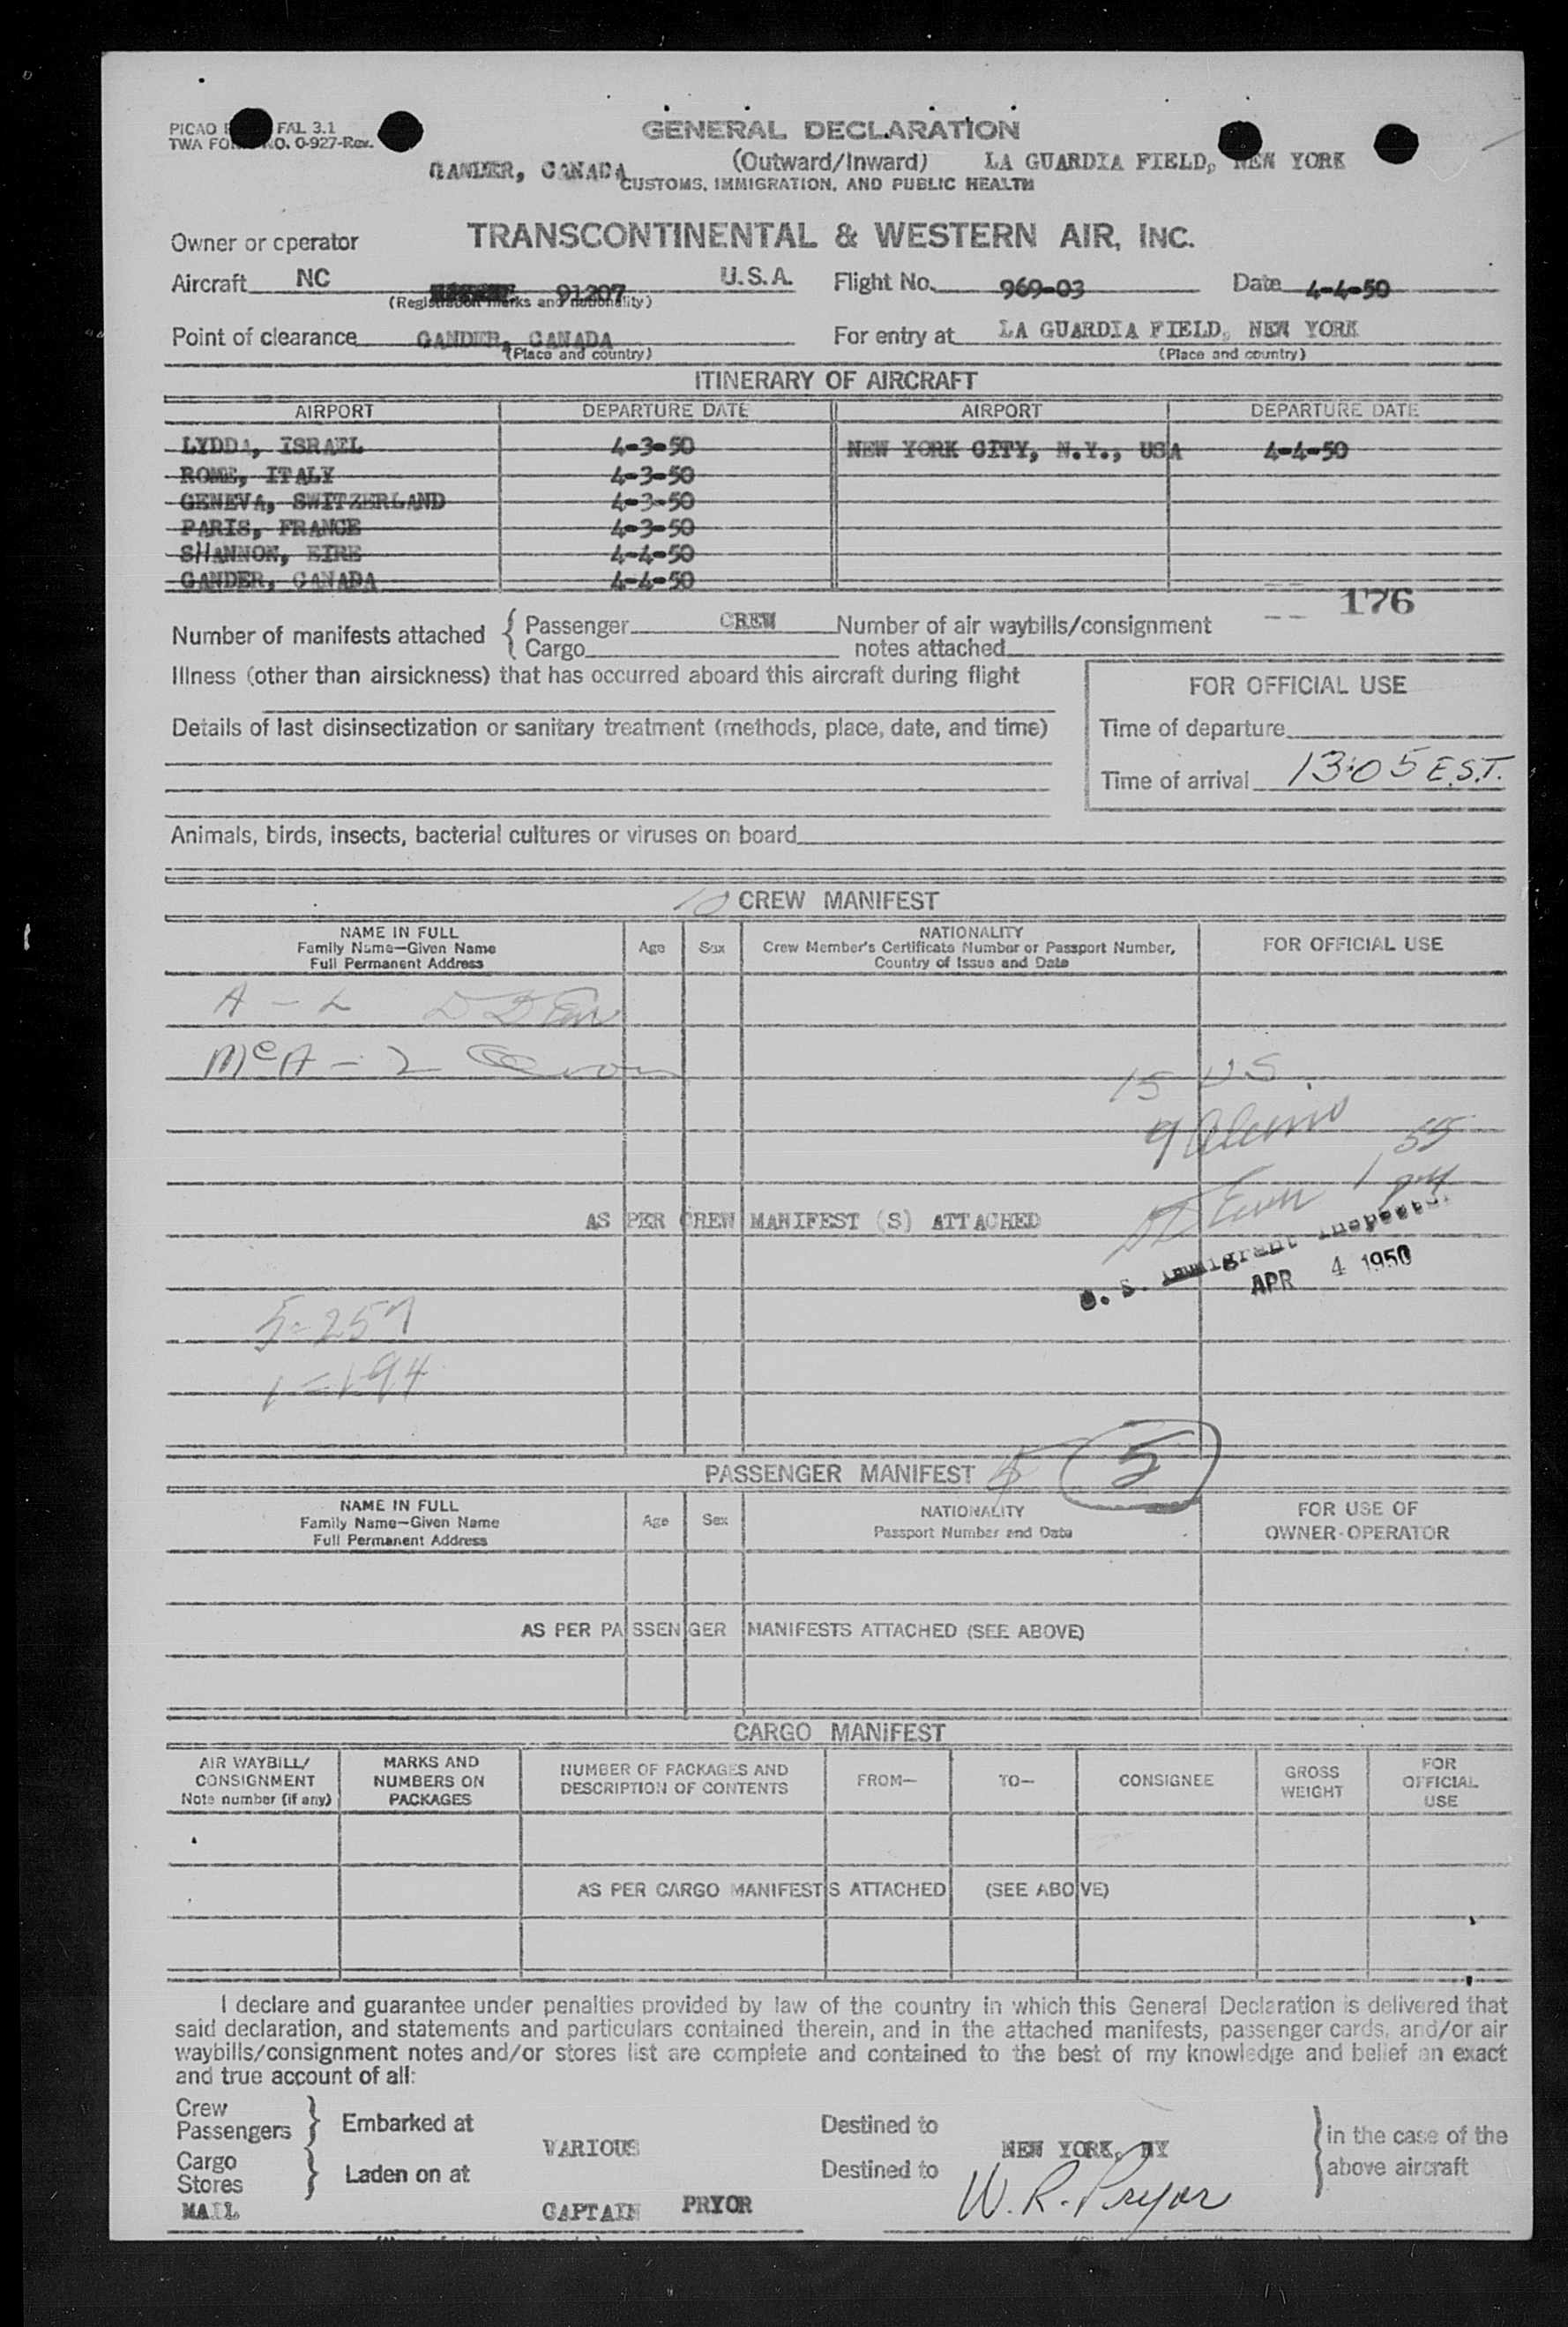 PICAO FAL 3.1
TWA FO NO. O-927-Rev.
GENERAL DECLARATION
(Outward/Inward)
GANDER, CANADA LA GUARDIA FIELD, NEW YORK
CUSTOMS, IMMIGRATION, AND PUBLIC HEALTH
Owner or operator TRANSCONTINENTAL & WESTERN AIR, INC.
Aircraft NC 91207 U.S.A. Flight No. 969-03 Date 4-4-50
(Registration marks and nationality)
Point of clearance GANDER, CANADA For entry at LA GUARDIA FIELD, NEW YORK
(Place and country) (Place and country)
ITINERARY OF AIRCRAFT
AIRPORT DEPARTURE DATE AIRPORT DEPARTURE DATE
LYDDA, ISRAEL 4-3-50 NEW YORK CITY, N.Y., USA 4-4-50
ROME, ITALY 4-3-50
GENEVA, SWITZERLAND 4-3-50
PARIS, FRANCE 4-3-50
SHANNON, EIRE 4-4-50
GANDER, CANADA 4-4-50
176
Number of manifests attached { Passenger CREW Number of air waybills/consignment
Cargo notes attached
Illness (other than airsickness) that has occurred aboard this aircraft during flight
FOR OFFICIAL USE
Details of last disinsectization or sanitary treatment (methods, place, date, and time)
Time of departure
Time of arrival 13:05 E.S.T.
Animals, birds, insects, bacterial cultures or viruses on board
10 CREW MANIFEST
NAME IN FULL
Family Name—Given Name
Full Permanent Address
Age Sex
NATIONALITY
Crew Member's Certificate Number or Passport Number,
Country of Issue and Date
FOR OFFICIAL USE
A - L
McA - Z
15 US.
9 Aliens
1 55
PM
AS PER CREW MANIFEST (S) ATTACHED
U. S. Immigrant Inspector
APR 4 1950
5-257
1=194
PASSENGER MANIFEST 5
NAME IN FULL
Family Name—Given Name
Full Permanent Address
Age Sex
NATIONALITY
Passport Number and Date
FOR USE OF
OWNER-OPERATOR
AS PER PASSENGER MANIFESTS ATTACHED (SEE ABOVE)
CARGO MANIFEST
AIR WAYBILL/
CONSIGNMENT
Note number (if any)
MARKS AND
NUMBERS ON
PACKAGES
NUMBER OF PACKAGES AND
DESCRIPTION OF CONTENTS
FROM—
TO—
CONSIGNEE
GROSS
WEIGHT
FOR
OFFICIAL
USE
AS PER CARGO MANIFESTS ATTACHED (SEE ABOVE)
I declare and guarantee under penalties provided by law of the country in which this General Declaration is delivered that
said declaration, and statements and particulars contained therein, and in the attached manifests, passenger cards, and/or air
waybills/consignment notes and/or stores list are complete and contained to the best of my knowledge and belief an exact
and true account of all:
Crew
Passengers } Embarked at VARIOUS Destined to NEW YORK, NY } in the case of the
Cargo
Stores } Laden on at Destined to above aircraft
MAIL CAPTAIN PRYOR W. R. Pryor